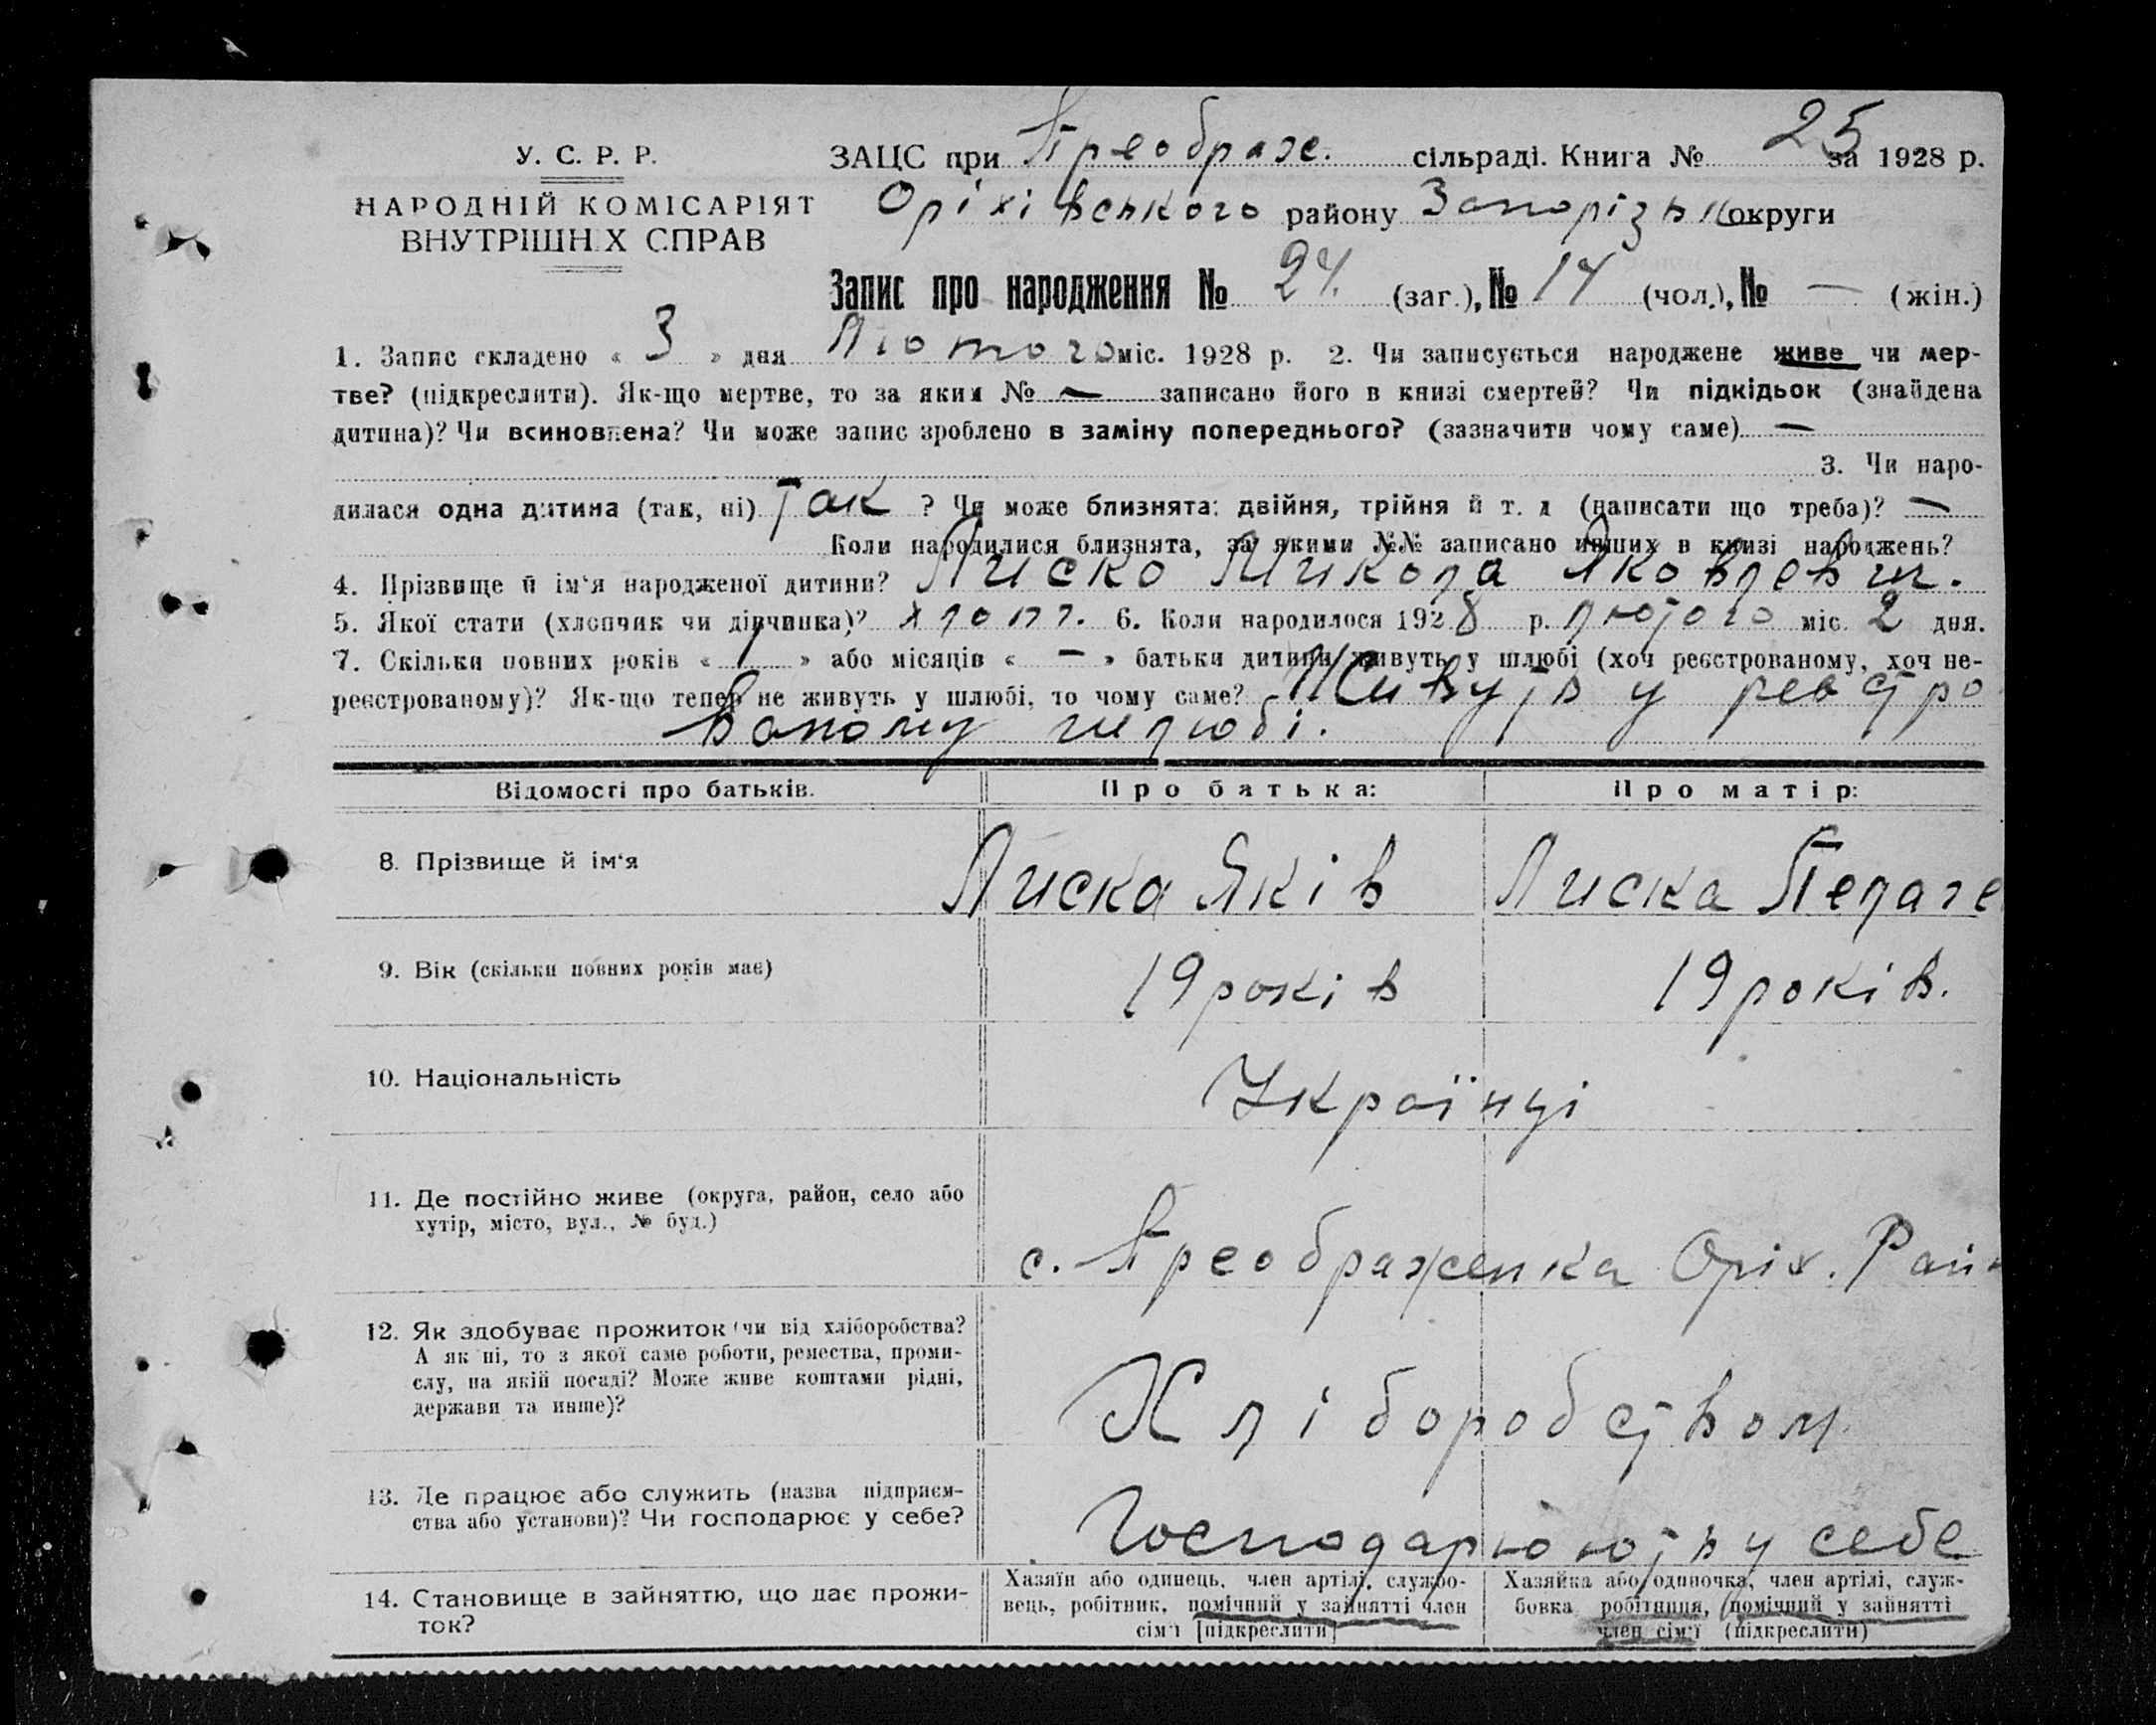 У. С. Р. Р.
НАРОДНІЙ КОМІСАРІЯТ
ВНУТРІШНІХ СПРАВ
ЗАЦС при Преображ. сільраді. Книга № 25 за 1928 р.
Оріхівського району Запорізьк округи
Запис про народження № 24 (заг.), № 14 (чол.), № — (жін.)
1. Запис складено « 3 » дня Лютого міс. 1928 р. 2. Чи записується народжене живе чи мер-
тве? (підкреслити). Як-що мертве, то за яким № — записано його в книзі смертей? Чи підкідьок (знайдена
дитина)? Чи всиновлена? Чи може запис зроблено в заміну попереднього? (зазначити чому саме) —
3. Чи наро-
дилася одна дитина (так, ні) Так ? Чи може близнята: двійня, трійня й т. д (написати що треба)? —
Коли народилися близнята, за якими №№ записано инших в книзі народжень?
4. Прізвище й ім'я народженої дитини? Лиско Микола Яковлевич.
5. Якої стати (хлопчик чи дівчинка)? хлопч. 6. Коли народилося 1928 р. лютого міс. 2 дня.
7. Скільки повних років « 1 » або місяців « — » батьки дитини живуть у шлюбі (хоч реєстрованому, хоч не-
реєстрованому)? Як-що тепер не живуть у шлюбі, то чому саме? Живуть у реєстро
ваному шлюбі.
Відомості про батьків. Про батька: Про матір:
8. Прізвище й ім'я Лиска Яків Лиска Пелаге
9. Вік (скільки повних років має) 19 років 19 років.
10. Національність Українці
11. Де постійно живе (округа, район, село або
хутір, місто, вул., № буд.)
с. Преображенка Оріх. Рай
12. Як здобуває прожиток (чи від хліборобства?
А як ні, то з якої саме роботи, ремества, проми-
слу, на якій посаді? Може живе коштами рідні,
держави та инше)?
Хліборобством
13. Де працює або служить (назва підприєм-
ства або установи)? Чи господарює у себе?
Господарюють у себе
14. Становище в зайняттю, що дає прожи-
ток?
Хазяїн або одинець, член артілі, службо-
вець, робітник, помічний у зайнятті член
сім'ї [підкреслити]
Хазяйка або одиночка, член артілі, служ-
бовка робітниця, помічний у зайнятті
член сім'ї (підкреслити)